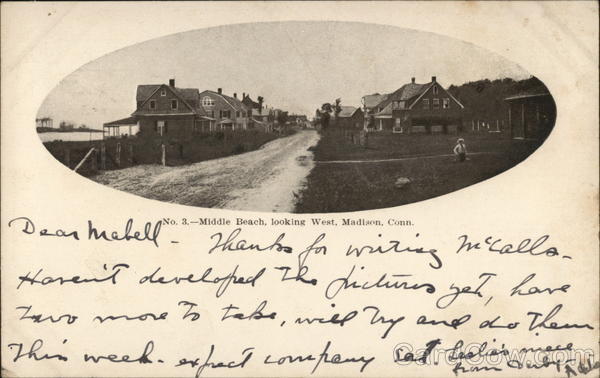 No. 3.—Middle Beach, looking West, Madison, Conn.
Dear Mabell - Thanks for writing McCalls.
Haven't developed the pictures yet, have
two more to take, will try and do them
this week. expect company Sat. Leslie's niece
from
CardCow.com